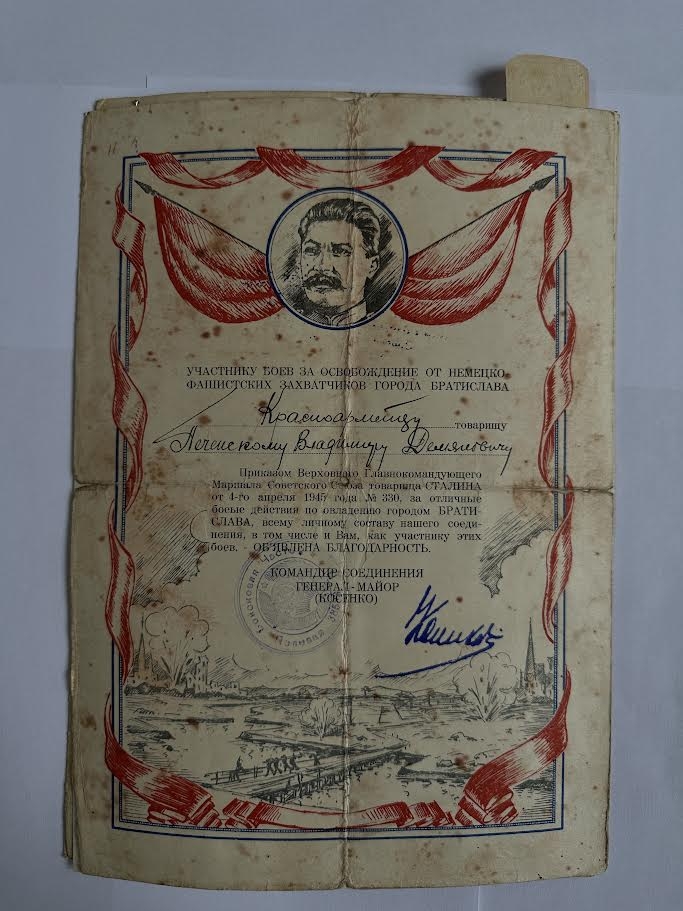 УЧАСТНИКУ БОЕВ ЗА ОСВОБОЖДЕНИЕ ОТ НЕМЕЦКО-
ФАШИСТСКИХ ЗАХВАТЧИКОВ ГОРОДА БРАТИСЛАВА
Красноармейцу товарищу
Печенскому Владимиру Демяновичу
Приказом Верховного Главнокомандующего
Маршала Советского Союза товарища СТАЛИНА
от 4-го апреля 1945 года № 330, за отличные
боевые действия по овладению городом БРАТИ-
СЛАВА, всему личному составу нашего соеди-
нения, в том числе и Вам, как участнику этих
боев, - ОБ'ЯВЛЕНА БЛАГОДАРНОСТЬ.
КОМАНДИР СОЕДИНЕНИЯ
ГЕНЕРАЛ-МАЙОР
(КОСЕНКО)